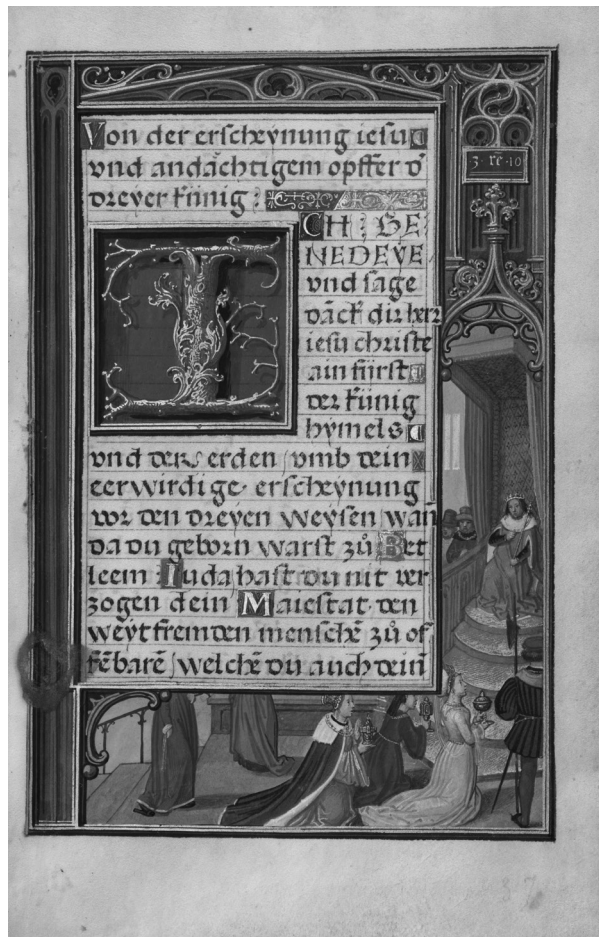 Von der erscheynung iesu
vnd andächtigem opffer d̄
dreyer künig :
ICH : GE
NEDEYE
vnd sage
däck dir herr
iesu christe
ain fürst
der künig
hymels
vnd der erden / vmb dein
eerwirdige erscheynung
vor den dreyen weysen / wan̄
da du geborn warst zů Bet
leem Iuda hast du nit ver
zogen dein Maiestat den
weytfremden menschē zů of
fēbarē / welchē du auch dein
3 · rē · 10